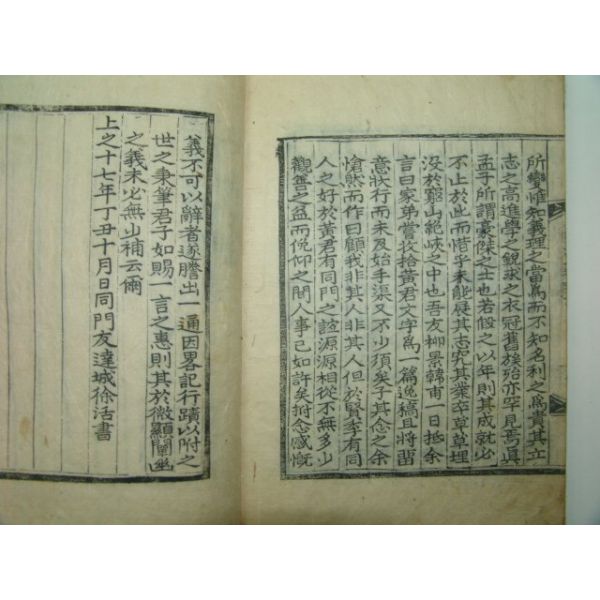 所變惟知義理之當爲而不知名利之爲貴其立
志之高進學之銳求之衣冠舊族殆亦罕見焉眞
孟子所謂豪傑之士也若假之以年則其成就必
不止於此而惜乎未能展其志究其業卒草草埋
沒於窮山絶峽之中也吾友柳景韓甫一日抵余
言曰家弟嘗收拾黃君文字爲一篇逸稿且將留
意狀行而未及始手渠又不少須矣子其念之余
愴然而作曰顧我非其人非其人但於賢季有同
人之好於黃君有同門之誼源源相從不無多少
觀善之益而俛仰之間人事已如許矣拊念感慨
義不可以辭者遂謄出一通因畧記行蹟以附之
世之秉筆君子如賜一言之惠則其於微顯闡幽
之義未必無少補云爾
上之十七年丁丑十月日同門友達城徐活書